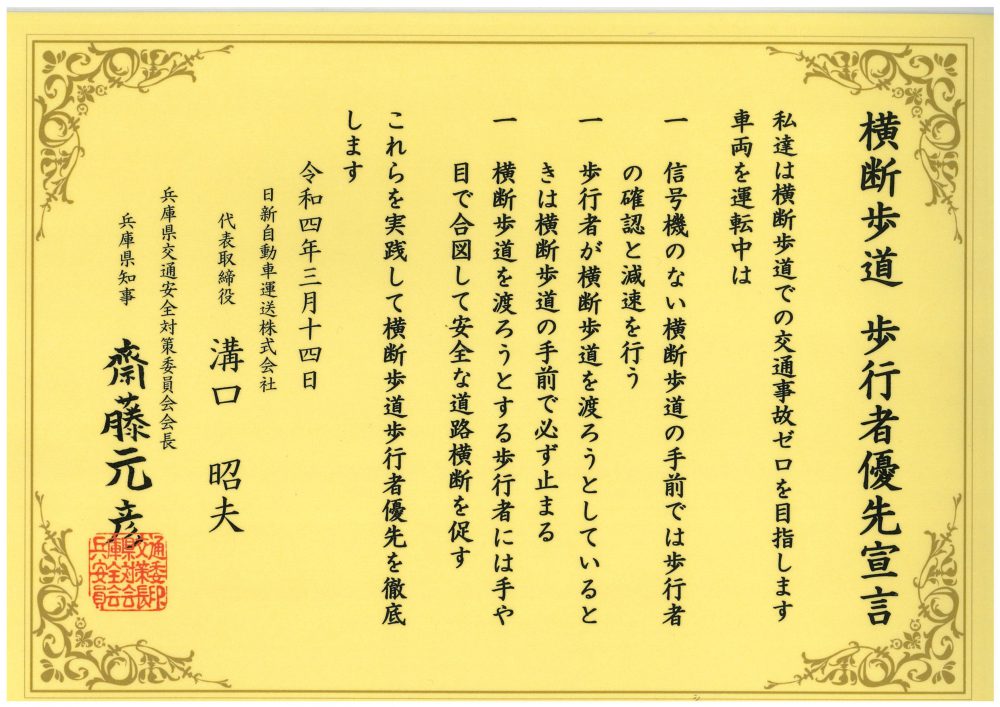 横断歩道 歩行者優先宣言
私達は横断歩道での交通事故ゼロを目指します
車両を運転中は
一 信号機のない横断歩道の手前では歩行者
の確認と減速を行う
一 歩行者が横断歩道を渡ろうとしていると
きは横断歩道の手前で必ず止まる
一 横断歩道を渡ろうとする歩行者には手や
目で合図して安全な道路横断を促す
これらを実践して横断歩道歩行者優先を徹底
します
令和四年三月十四日
日新自動車運送株式会社
代表取締役 溝口 昭夫
兵庫県交通安全対策委員会会長
兵庫県知事 齋藤元彦
兵庫県交通
安全対策委
員会会長印